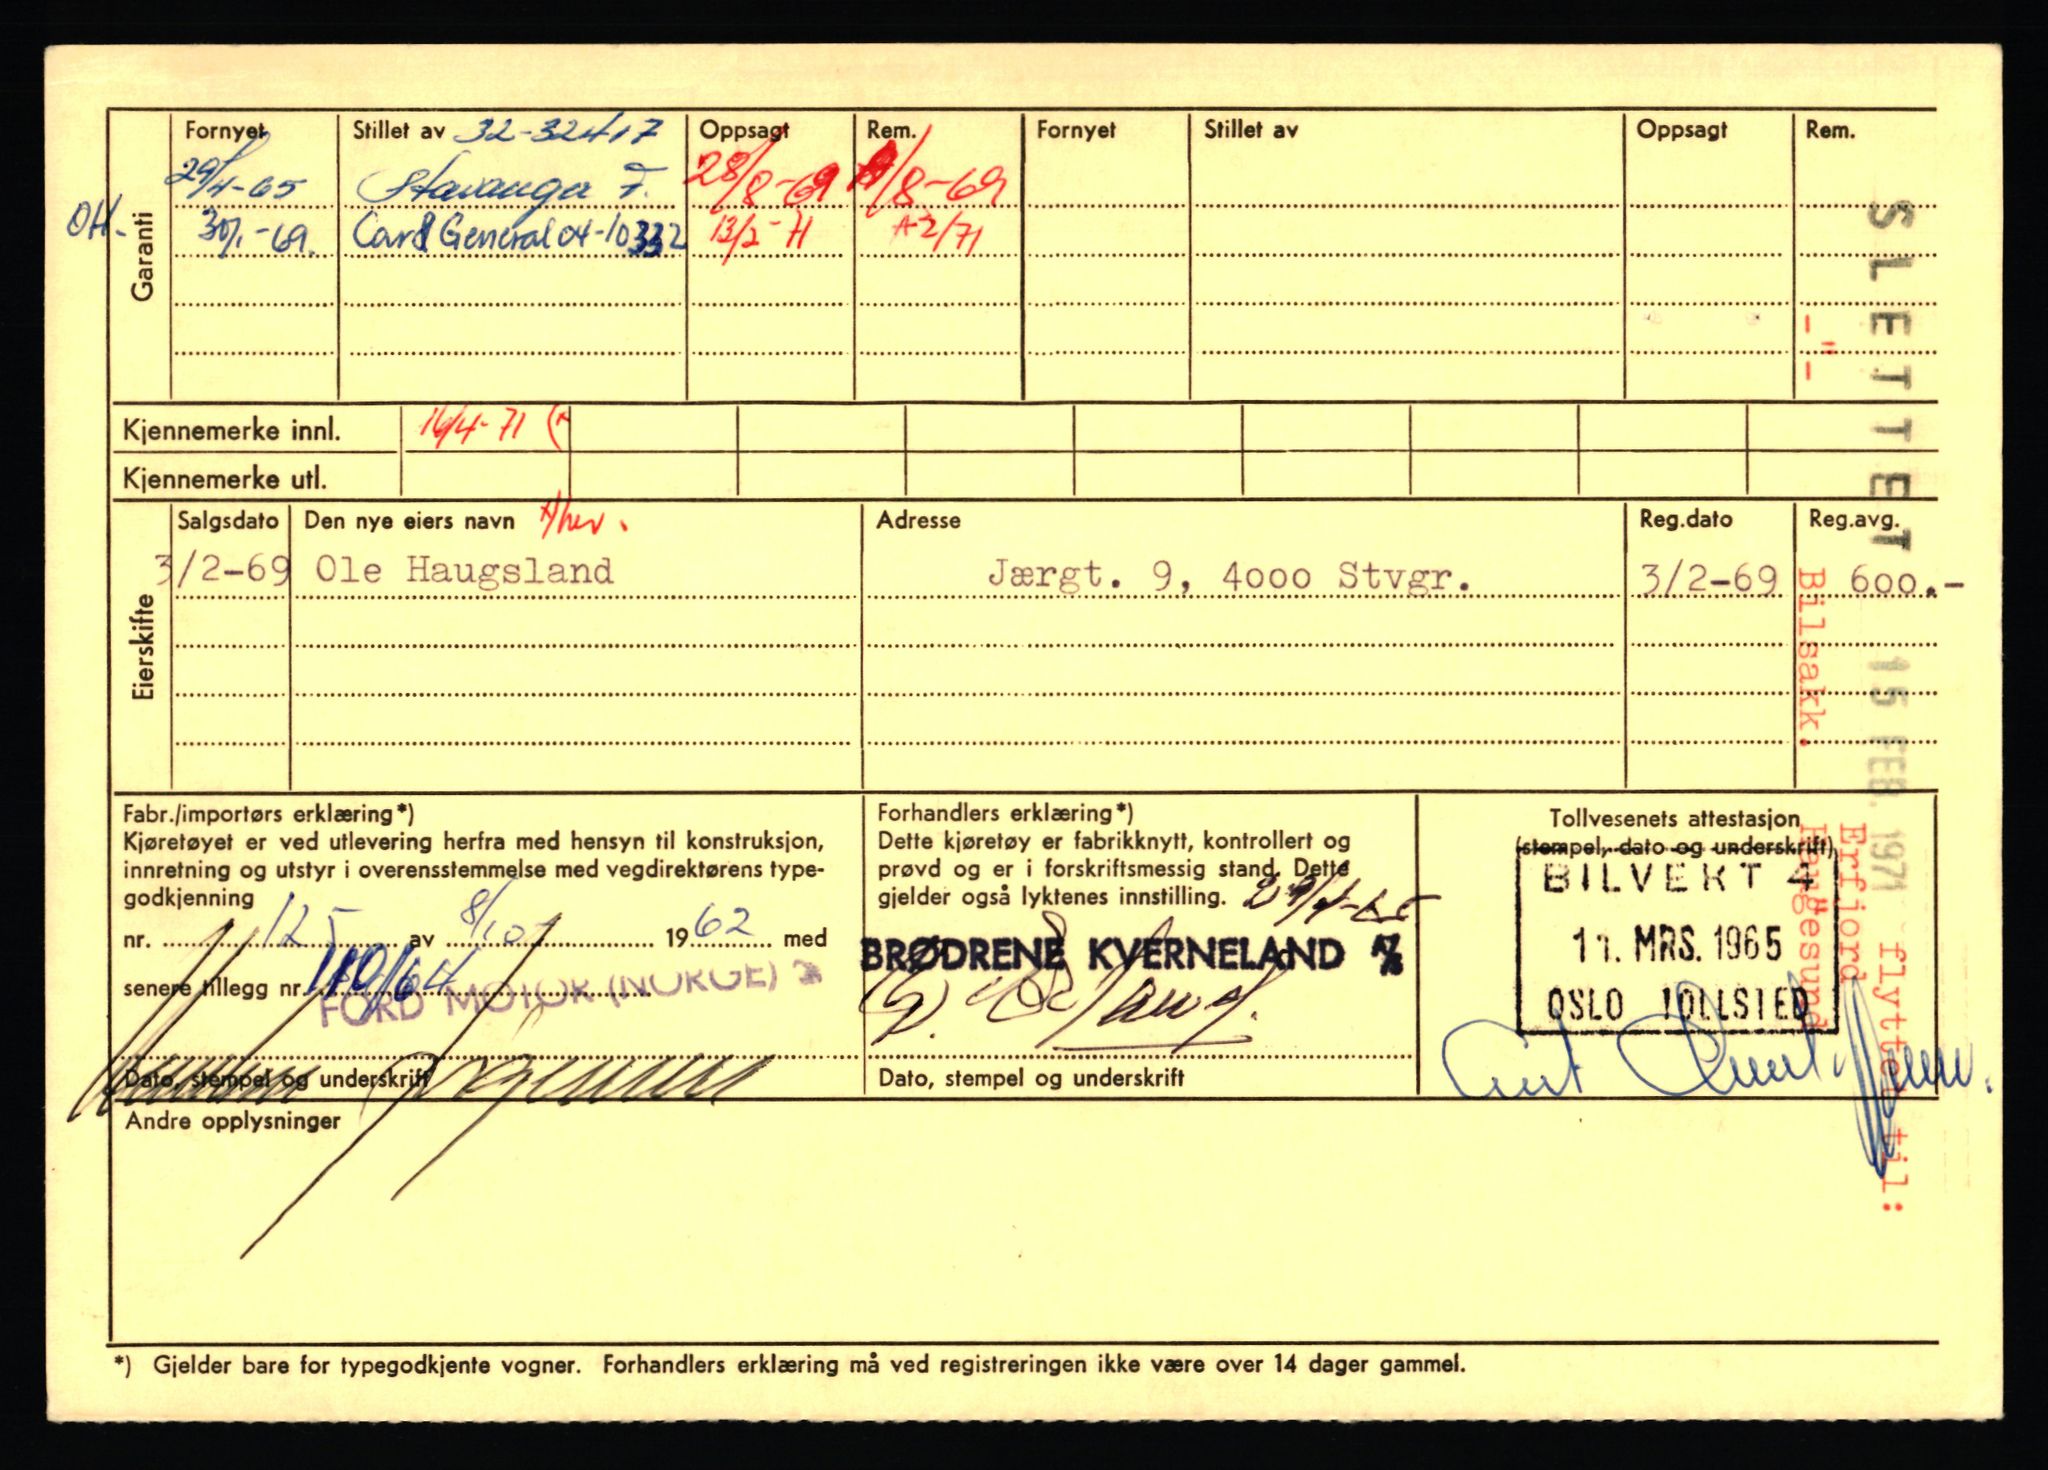 Garanti
Fornyet
Stillet av 32-32417
Oppsagt
Rem.
Fornyet
Stillet av
Oppsagt
Rem.
29/4-65 Stavanger F. 28/8-69 /8-69
OH. 30/1-69. Car & General 04-10332 13/2-71 A2/71
Kjennemerke innl. 16/4-71
Kjennemerke utl.
Eierskifte
Salgsdato
Den nye eiers navn
Adresse
Reg.dato
Reg.avg.
3/2-69 Ole Haugsland Jærgt. 9, 4000 Stvgr. 3/2-69 600.-
Fabr./importørs erklæring*)
Kjøretøyet er ved utlevering herfra med hensyn til konstruksjon,
innretning og utstyr i overensstemmelse med vegdirektørens type-
godkjenning
nr. 125 av 8/10 1962 med
senere tillegg nr. 110/64
FORD MOTOR (NORGE)
Dato, stempel og underskrift
Forhandlers erklæring*)
Dette kjøretøy er fabrikknytt, kontrollert og
prøvd og er i forskriftsmessig stand. Dette
gjelder også lyktenes innstilling. 29/4-65
BRØDRENE KVERNELAND A/S
Dato, stempel og underskrift
Tollvesenets attestasjon
(stempel, dato og underskrift)
BILVERT 4
11. MRS. 1965
OSLO TOLLSTED
Andre opplysninger
*) Gjelder bare for typegodkjente vogner. Forhandlers erklæring må ved registreringen ikke være over 14 dager gammel.
SLETTET 15 FEB. 1971
flyttet til:
Erfjord
-"- Bilsakk. Haugesund